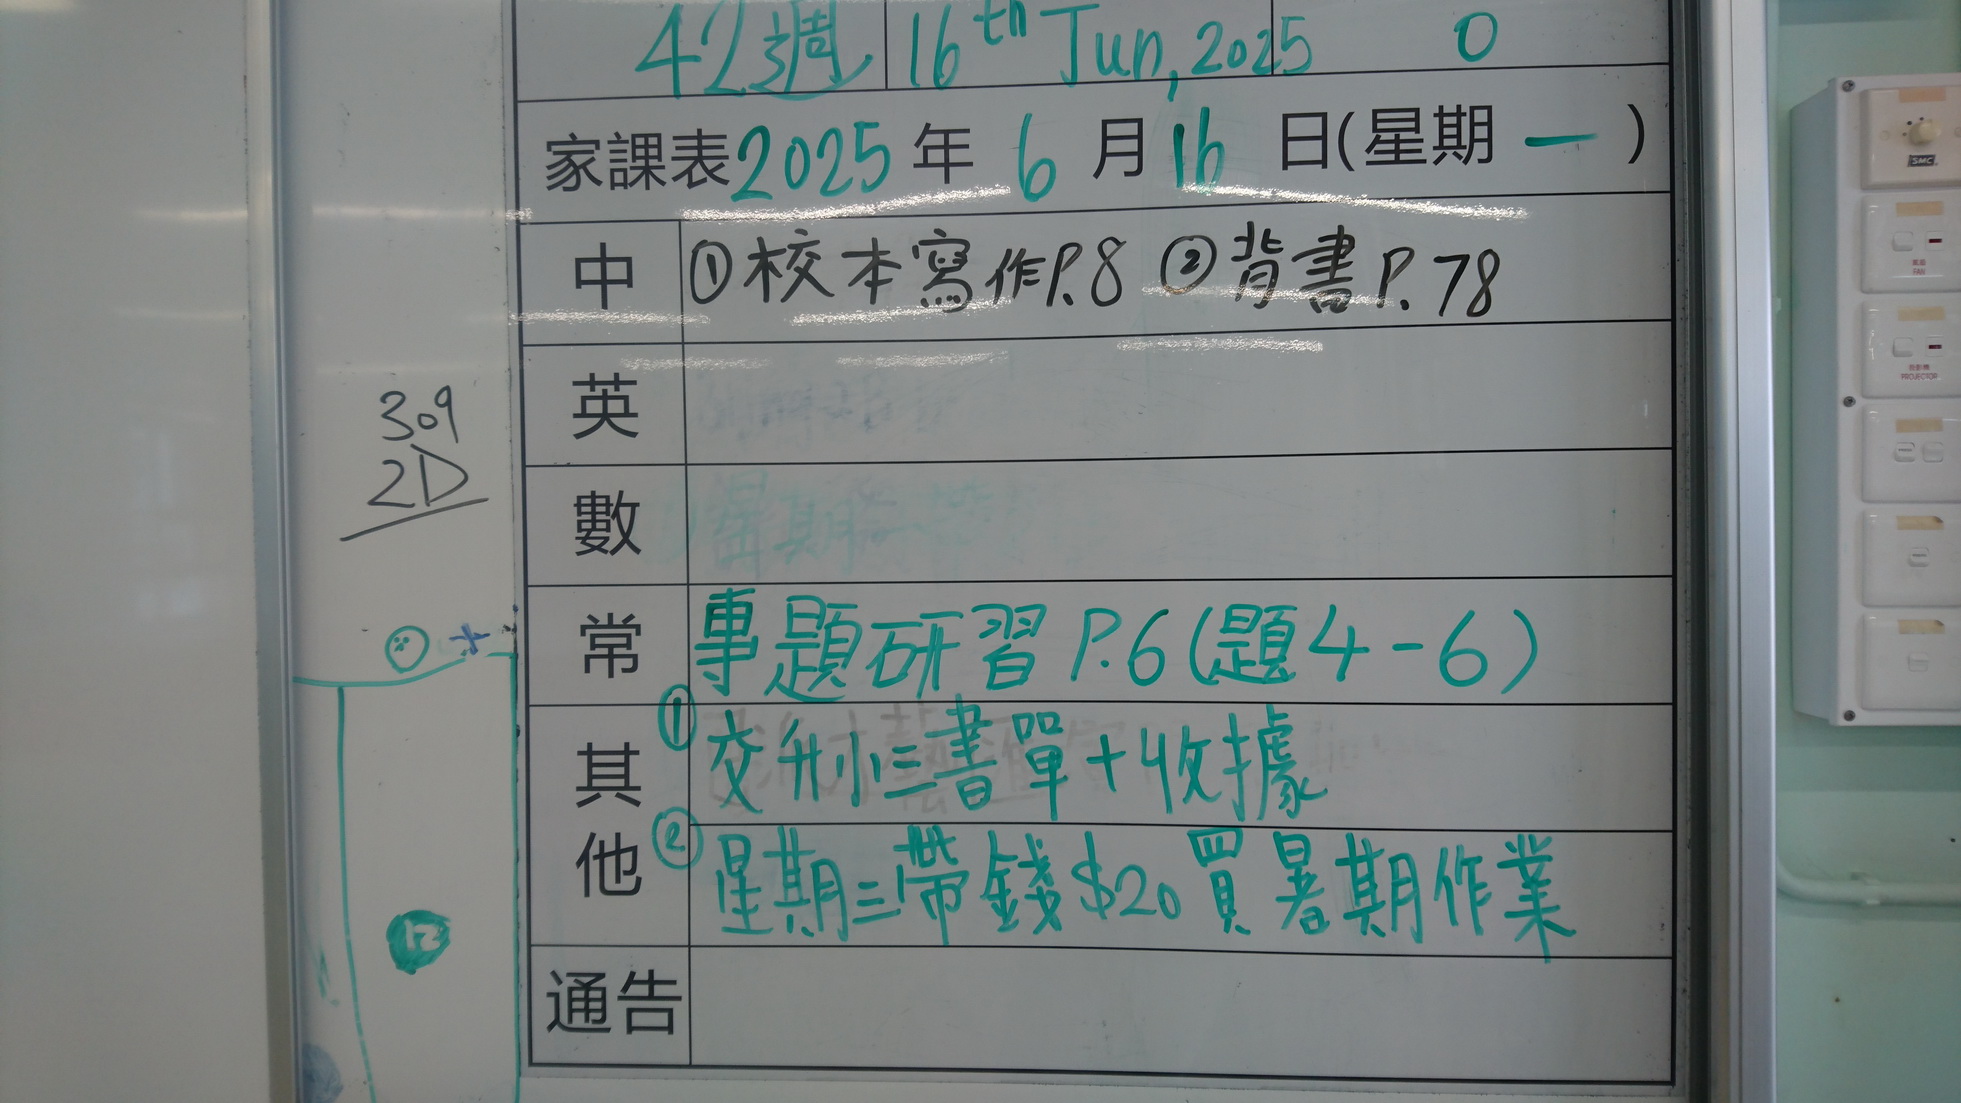 42週 16th Jun, 2025 0
家課表2025年6月16日(星期一)
中 ①校本寫作P.8 ②背書P.78
英
數
常 專題研習P.6(題4-6)
其他 ①交升小三書單+收據
②星期三帶錢$20買暑期作業
通告
309
2D
12
SMC
FAN
PROJECTOR